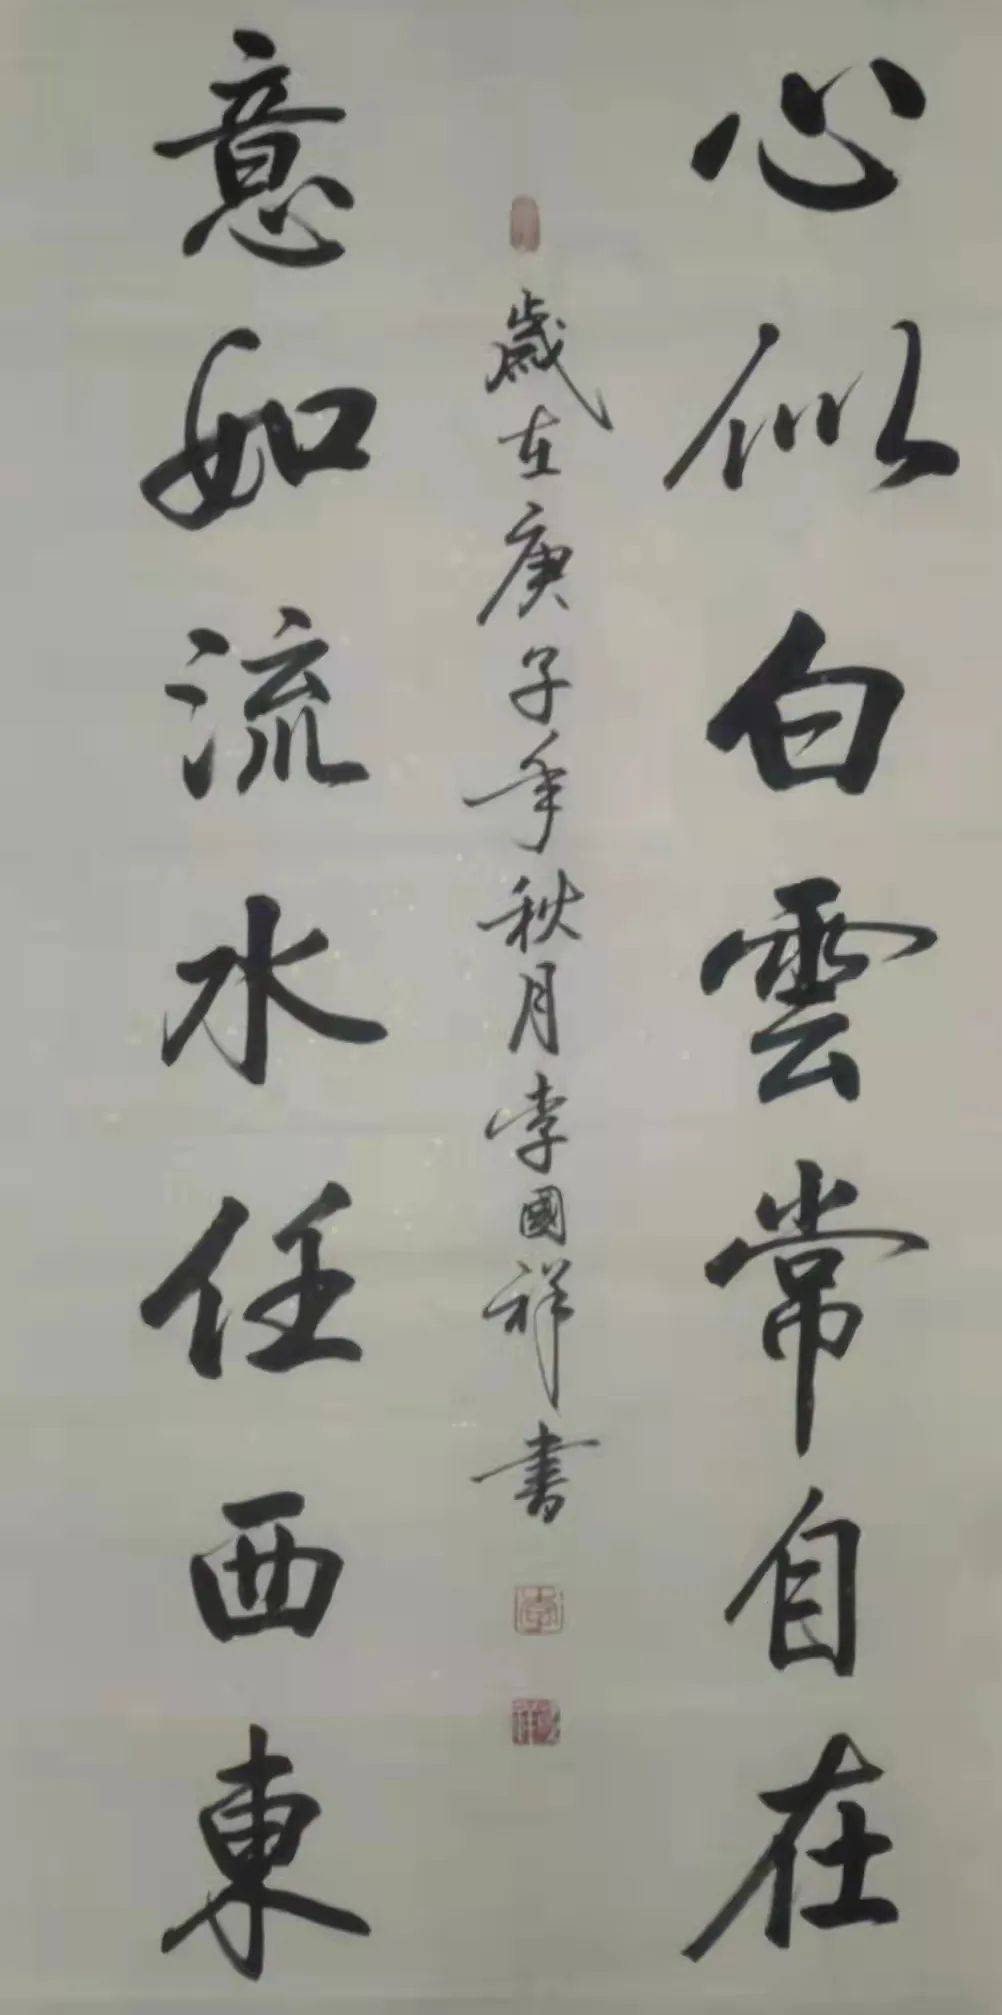 心似白雲常自在
歲在庚子年秋月李國祥書
意如流水任西東